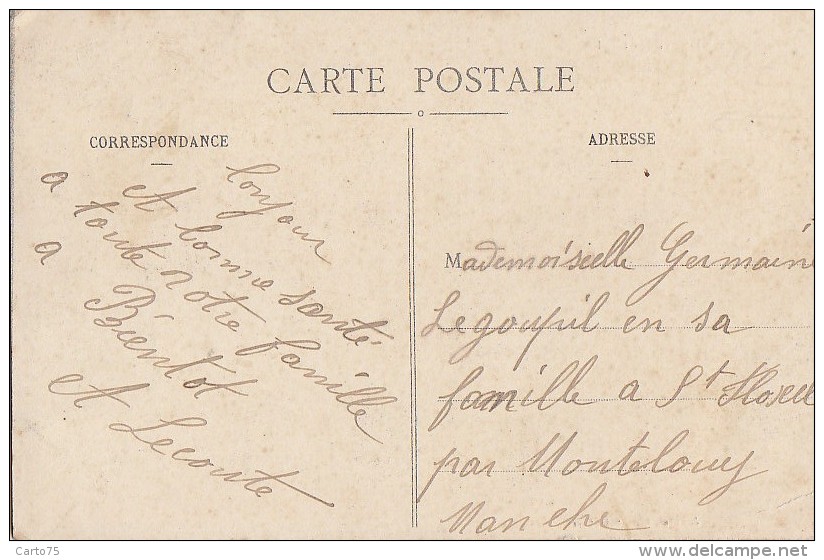 CARTE POSTALE
CORRESPONDANCE
bonjour
et bonne santé
a toute votre famille
a Bientot
A Lecoute
ADRESSE
Mademoiselle Germaine
Legoupil en sa
famille a St
par
Manche
Carto75
www.delcampe.net